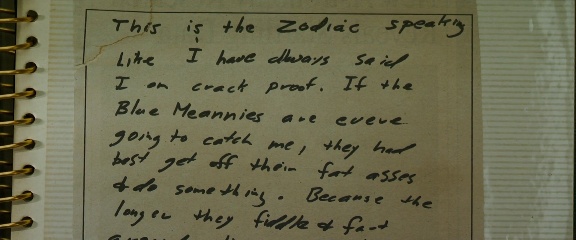 This is the Zodiac speaking
Like I have always said
I am crack proof. If the
Blue Meannies are evere
going to catch me, they had
best get off their fat asses
& do something. Because the
longer they fiddle & fart